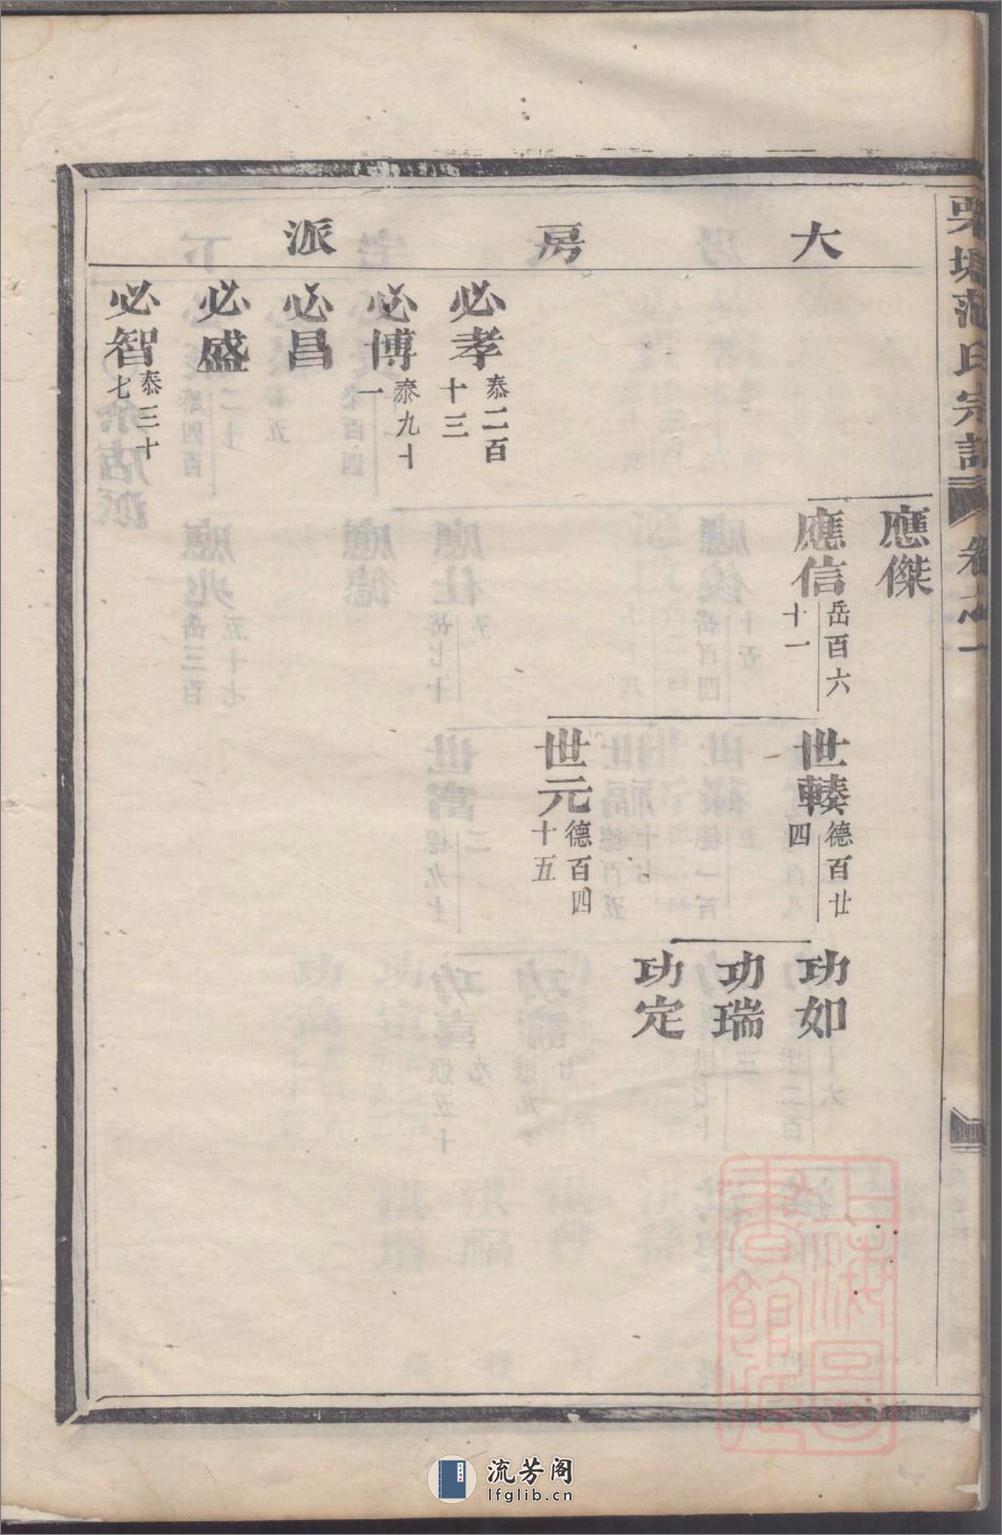 大房派
必孝 泰二百十三
必博 泰九十一
必昌
必盛
必智 泰三十七
應傑
應信 岳百六十一
世轃 德百廿四
世元 德百四十五
功如
功瑞
功定
氏宗譜 卷之一
上海圖書館藏
流芳阁
lfglib.cn